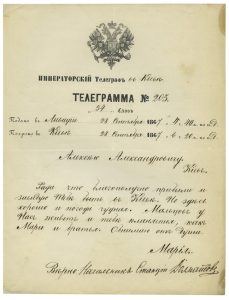 ИМПЕРАТОРСКІЙ Телеграфъ въ Кіевѣ
ТЕЛЕГРАММА № 265.
34 Словъ
Подана въ Ливадіи 28 Сентября 1867
Получена въ Кіевѣ 28 Сентября 1867
Алексѣю Александровичу
Кіевъ.
Рада что благополучно прибыли и
быть въ Кіевѣ. Но здѣсь
хорошо и погода чудная.
Насъ живетъ и тебѣ кланяется, также
Мари и братья. Обнимаю отъ души.
Марія
Вѣрно: Начальникъ Станціи